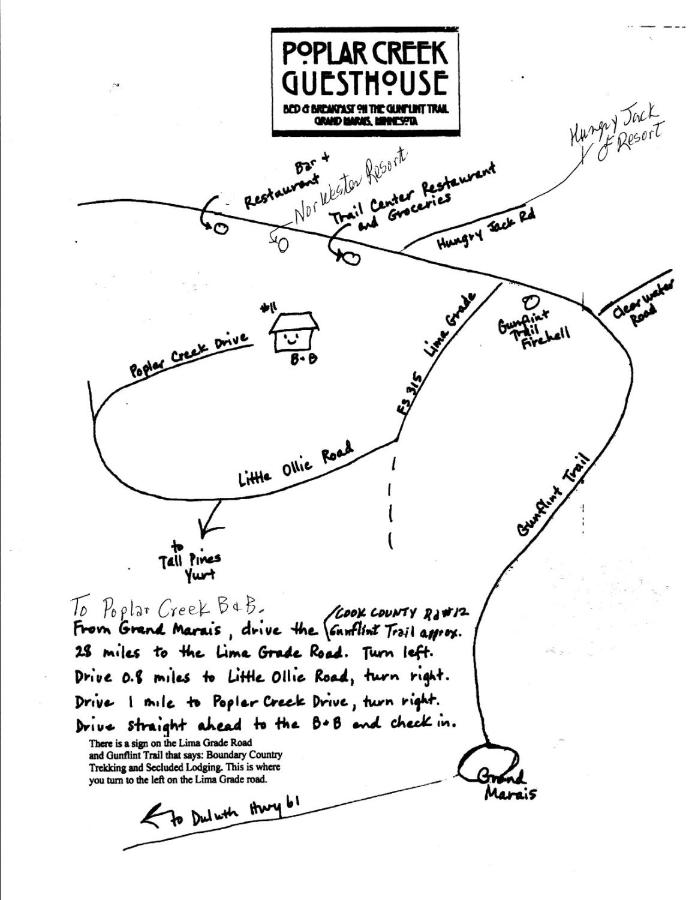 POPLAR CREEK
GUESTHOUSE
BED & BREAKFAST ON THE GUNFLINT TRAIL
GRAND MARAIS, MINNESOTA
Hungry Jack
Resort
Bar +
Restaurant
Nor'Wester Resort
Trail Center Restaurant
and Groceries
Hungry Jack Rd
Clearwater
Road
Gunflint
Trail
Firehall
#11
B+B
Poplar Creek Drive
FS 315 Lima Grade
Little Ollie Road
Gunflint Trail
to
Tall Pines
Yurt
To Poplar Creek B&B.
From Grand Marais, drive the (COOK COUNTY Rd #12
Gunflint Trail approx.
28 miles to the Lima Grade Road. Turn left.
Drive 0.8 miles to Little Ollie Road, turn right.
Drive 1 mile to Poplar Creek Drive, turn right.
Drive straight ahead to the B+B and check in.
There is a sign on the Lima Grade Road
and Gunflint Trail that says: Boundary Country
Trekking and Secluded Lodging. This is where
you turn to the left on the Lima Grade road.
Grand
Marais
to Duluth Hwy 61